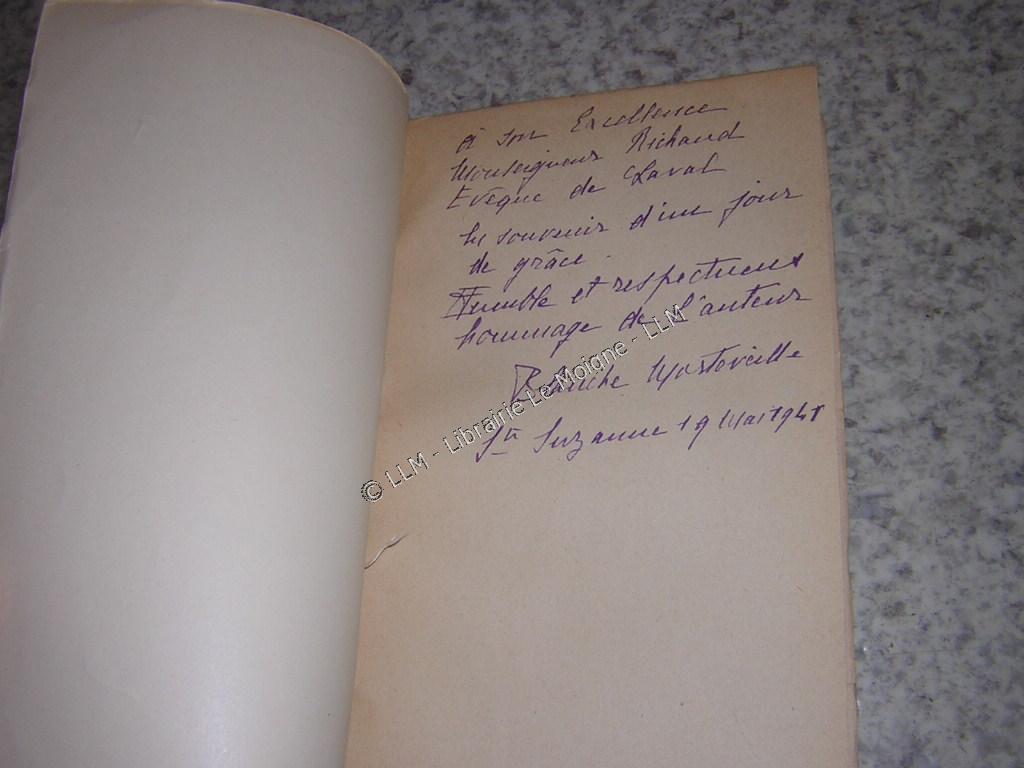 à son Excellence
Monseigneur Richaud
Evêque de Laval
En souvenir d'un jour
de grâce.
Humble et respectueux
hommage de l'auteur
Blanche
Ste Suzanne 19 Mai 1941
© LLM - Librairie Le Moigne - LLM